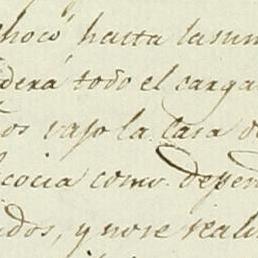 hoco hasta la sum
derá todo el carga
os vajo la Casa d
cocia como depen
idos, y no se reali